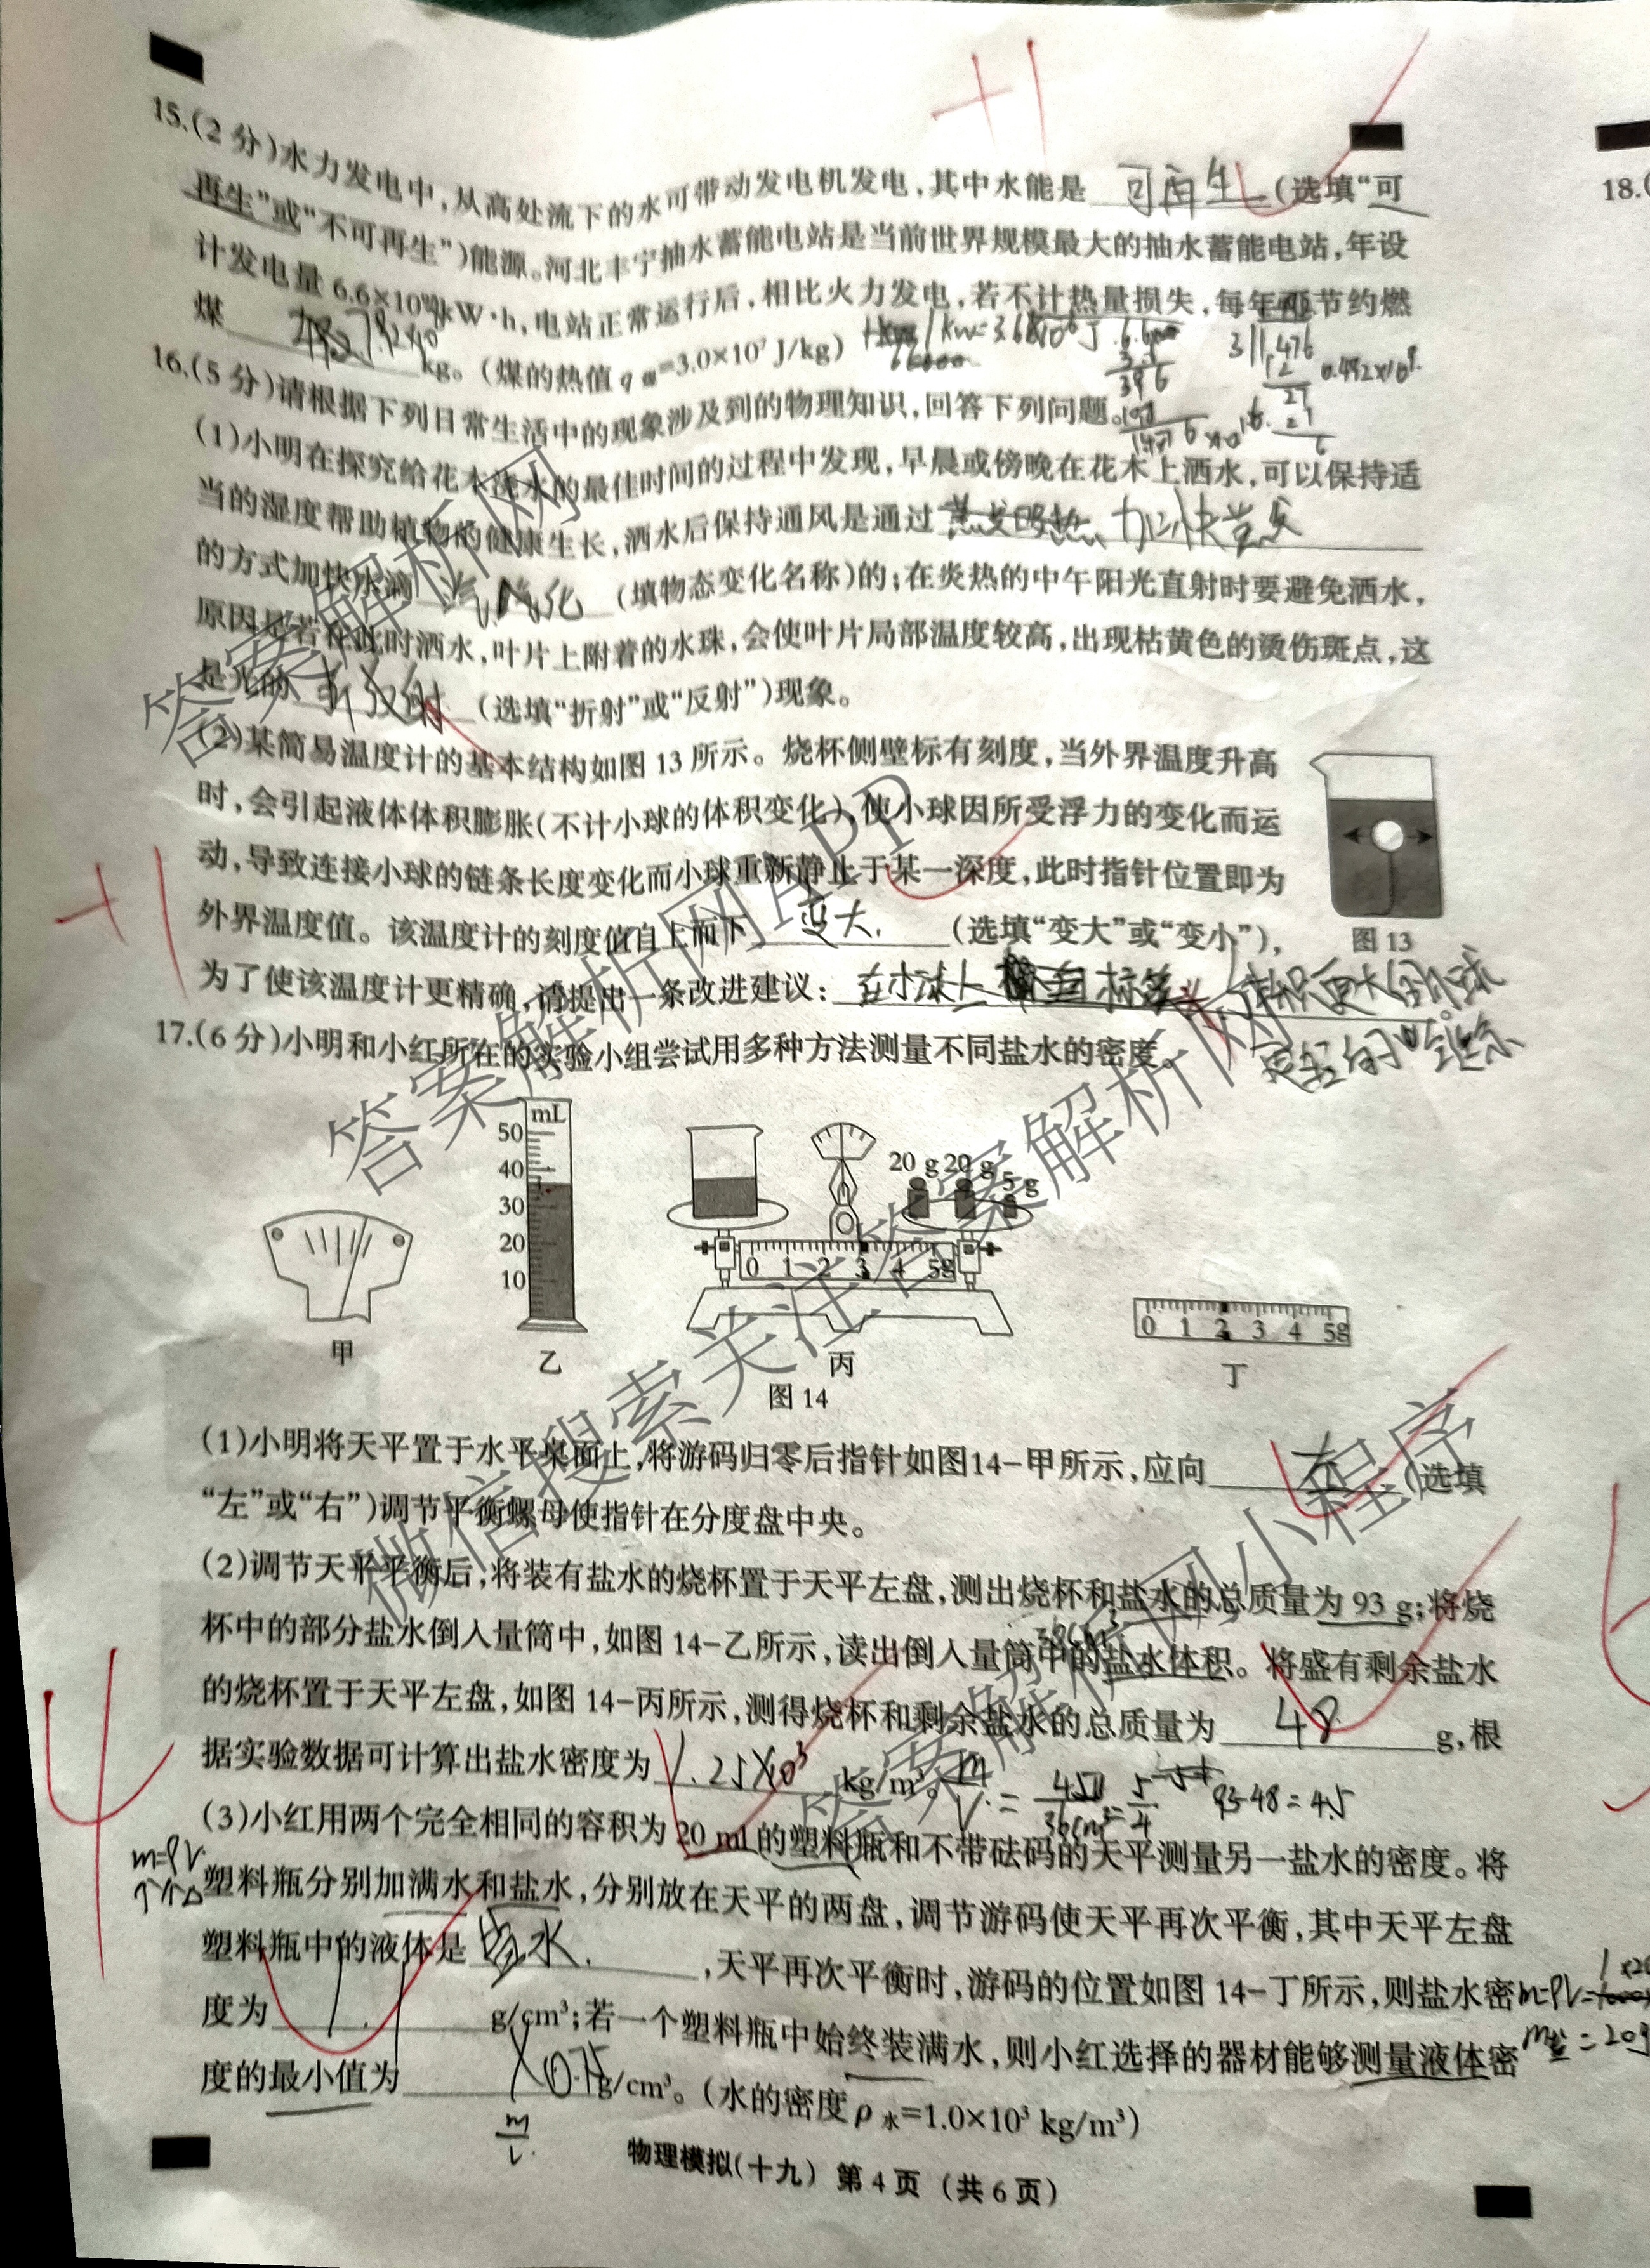 +1
15.(2分)水力发电中,从高处流下的水可带动发电机发电,其中水能是 可再生 (选填“可
再生”或“不可再生”)能源。河北丰宁抽水蓄能电站是当前世界规模最大的抽水蓄能电站,年设
计发电量 6.6×10 kW·h,电站正常运行后,相比火力发电,若不计热量损失,每年可节约燃
煤 kg。(煤的热值 q煤=3.0×10⁷ J/kg)
16.(5分)请根据下列日常生活中的现象涉及到的物理知识,回答下列问题。
(1)小明在探究给花木浇水的最佳时间的过程中发现,早晨或傍晚在花木上洒水,可以保持适
当的湿度帮助植物的健康生长,洒水后保持通风是通过 蒸发吸热 加快蒸发
的方式加快水滴 汽化 (填物态变化名称)的;在炎热的中午阳光直射时要避免洒水,
原因是若在此时洒水,叶片上附着的水珠,会使叶片局部温度较高,出现枯黄色的烫伤斑点,这
是光的 射 (选填“折射”或“反射”)现象。
(2)某简易温度计的基本结构如图 13 所示。烧杯侧壁标有刻度,当外界温度升高
时,会引起液体体积膨胀(不计小球的体积变化),使小球因所受浮力的变化而运
动,导致连接小球的链条长度变化而小球重新静止于某一深度,此时指针位置即为
外界温度值。该温度计的刻度值自上而下 变大. (选填“变大”或“变小”),
图 13
+1
为了使该温度计更精确,请提出一条改进建议: 在小球上
体积更大的小球
17.(6分)小明和小红所在的实验小组尝试用多种方法测量不同盐水的密度。
mL
50
40
30
20
10
20 g 20 g 5 g
0 1 2 3 4 5g
0 1 2 3 4 5g
甲 乙 丙 丁
图 14
(1)小明将天平置于水平桌面上,将游码归零后指针如图14-甲所示,应向 左 (选填
“左”或“右”)调节平衡螺母使指针在分度盘中央。
(2)调节天平平衡后,将装有盐水的烧杯置于天平左盘,测出烧杯和盐水的总质量为 93 g;将烧
杯中的部分盐水倒入量筒中,如图 14-乙所示,读出倒入量筒中的盐水体积。将盛有剩余盐水
的烧杯置于天平左盘,如图 14-丙所示,测得烧杯和剩余盐水的总质量为 48 g,根
据实验数据可计算出盐水密度为 1.25×10³ kg/m³。
93-48=45
(3)小红用两个完全相同的容积为 20 ml 的塑料瓶和不带砝码的天平测量另一盐水的密度。将
m=ρV
塑料瓶分别加满水和盐水,分别放在天平的两盘,调节游码使天平再次平衡,其中天平左盘
塑料瓶中的液体是 盐水. ,天平再次平衡时,游码的位置如图 14-丁所示,则盐水密
度为 1.1 g/cm³;若一个塑料瓶中始终装满水,则小红选择的器材能够测量液体密
度的最小值为 0.75 g/cm³。(水的密度 ρ水=1.0×10³ kg/m³)
4
物理模拟(十九) 第 4 页 (共 6 页)
18.(
答案解析网
答案解析网APP
微信搜索关注答案解析网
答案解析网小程序